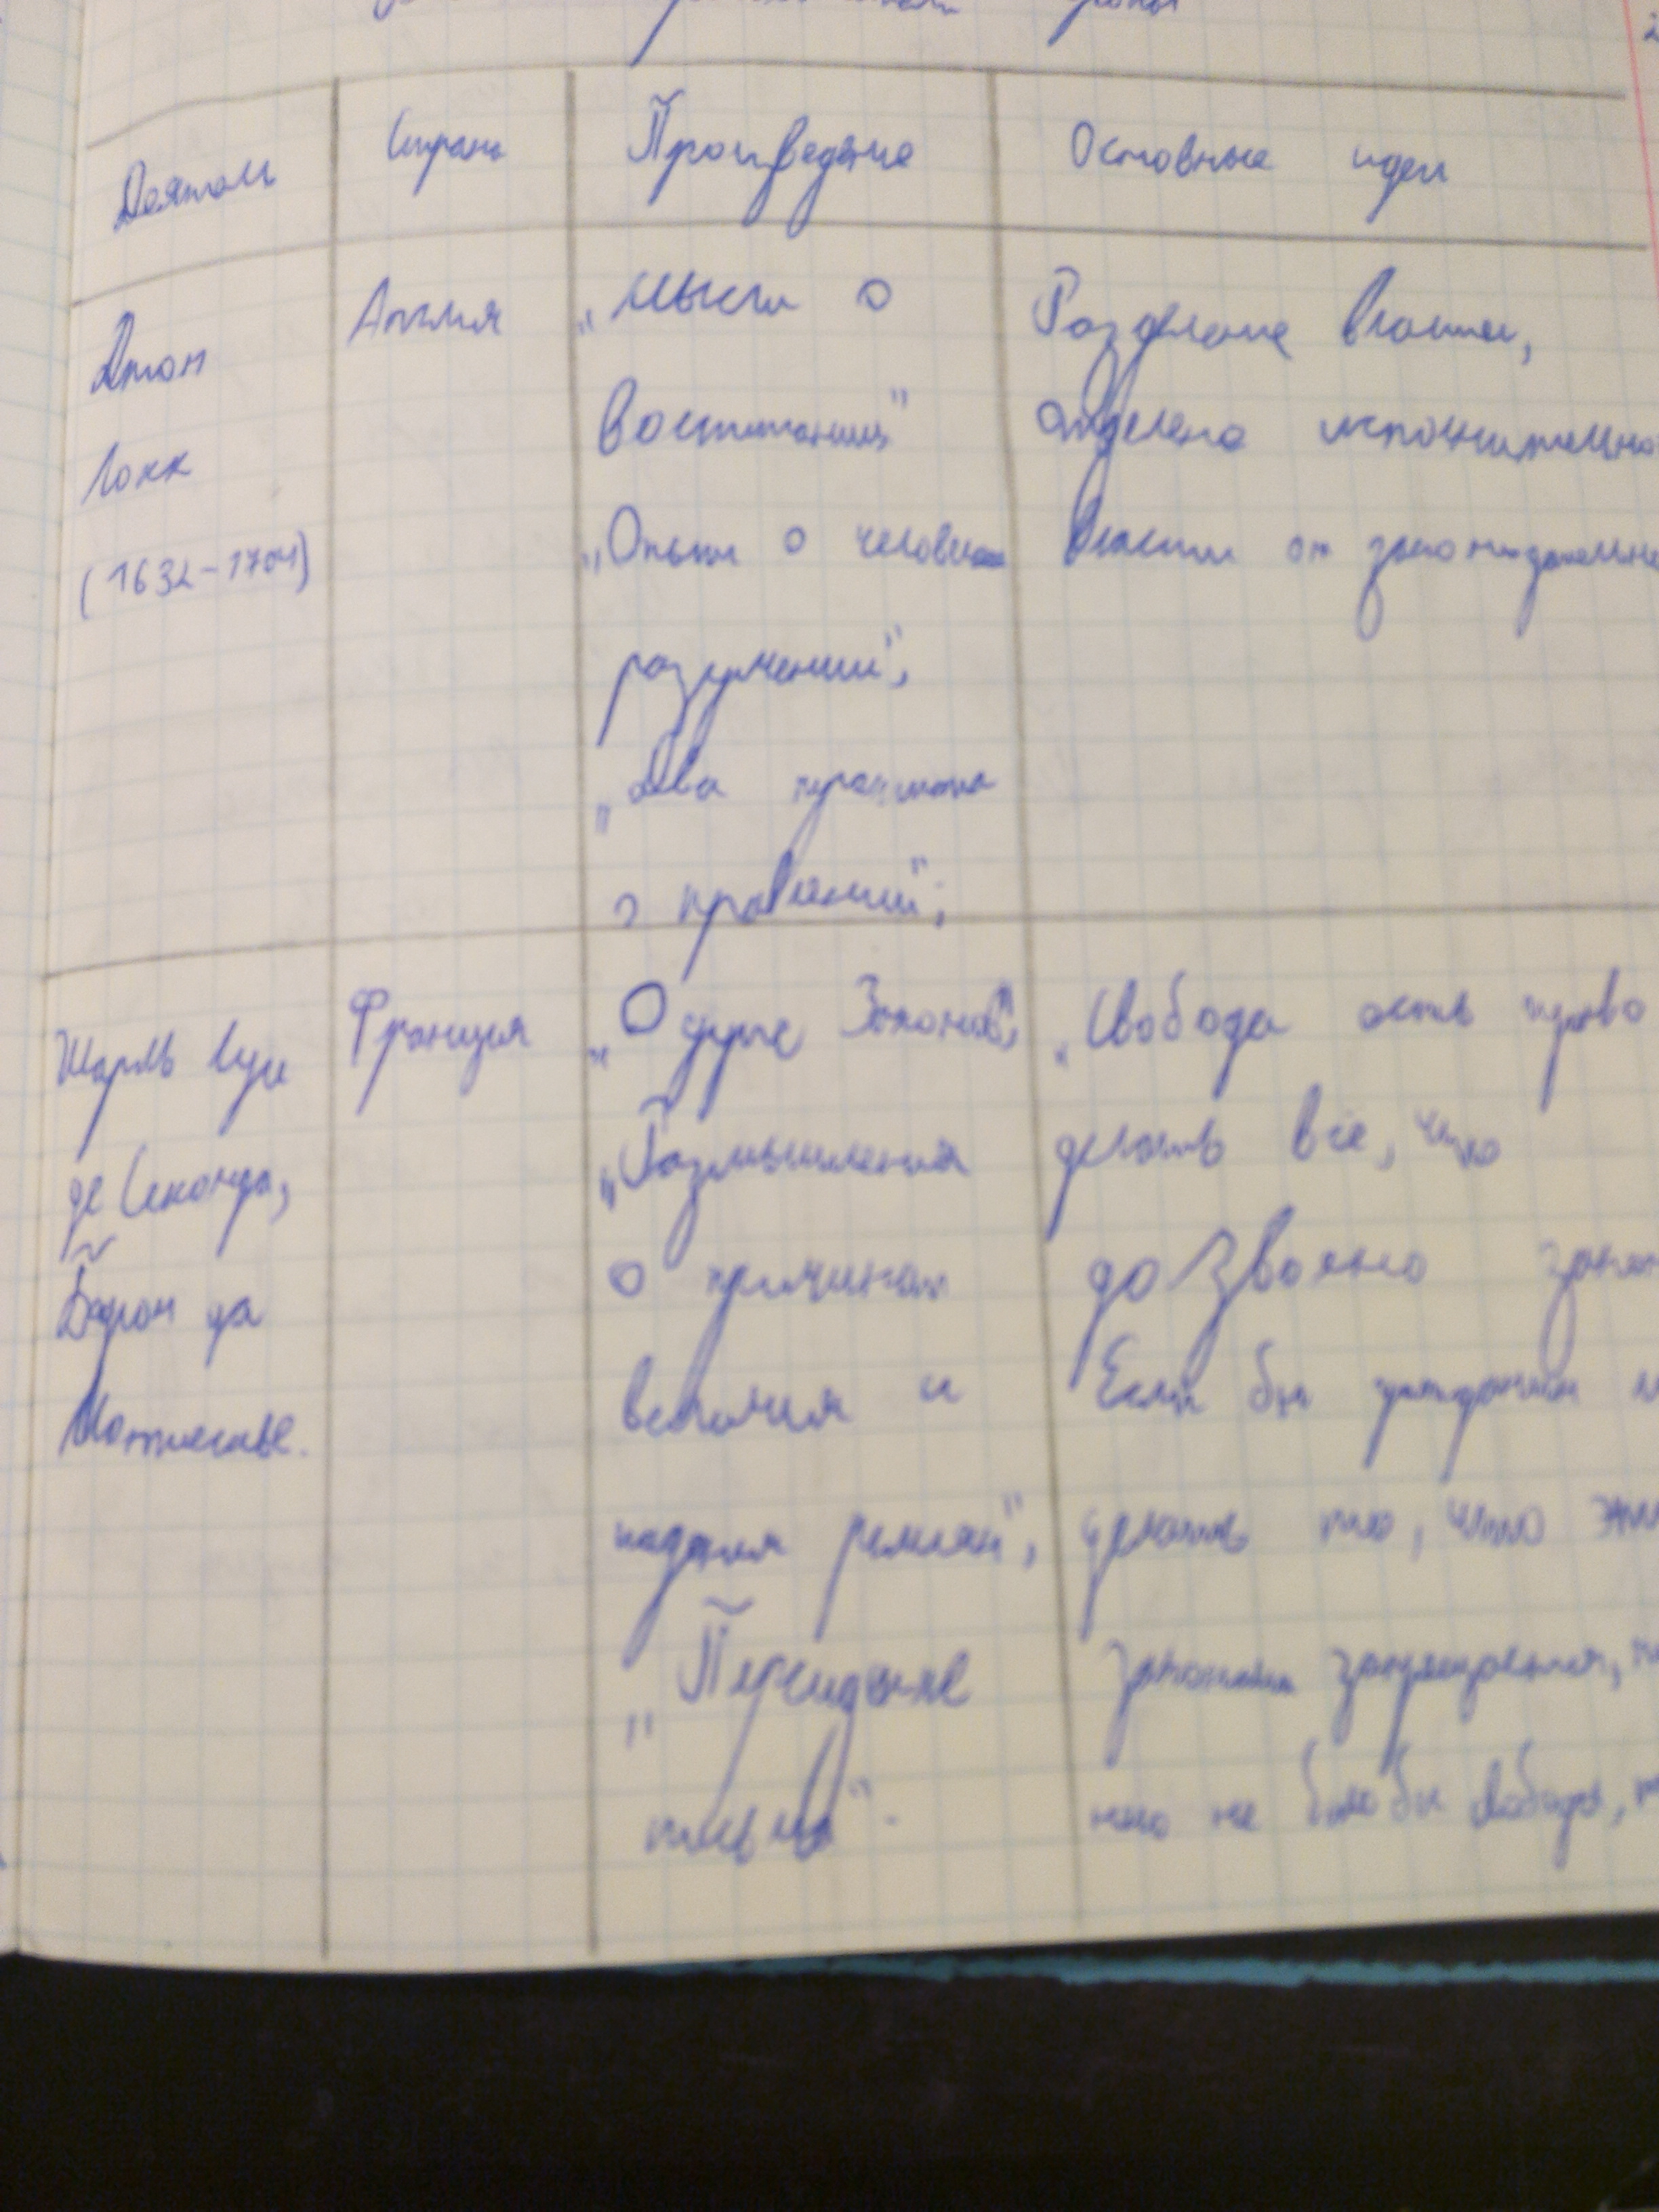 Деятель Страна Произведение Основные идеи
Джон Англия „Мысли о Разделение власти,
Локк воспитании" отделение исполнительной
(1632-1704) „Опыт о человеческом власти от законодательной
разумении",
„Два трактата
о правлении";
Шарль Луи Франция „О духе Законов", „Свобода есть право
де Секонда, „Размышления делать все, что
Барон де о причинах дозволено
Монтескье. величия и Если бы гражданин
падения римлян", делать то, что эти
„Персидские законами запрещается,
письма". него не было бы свободы,